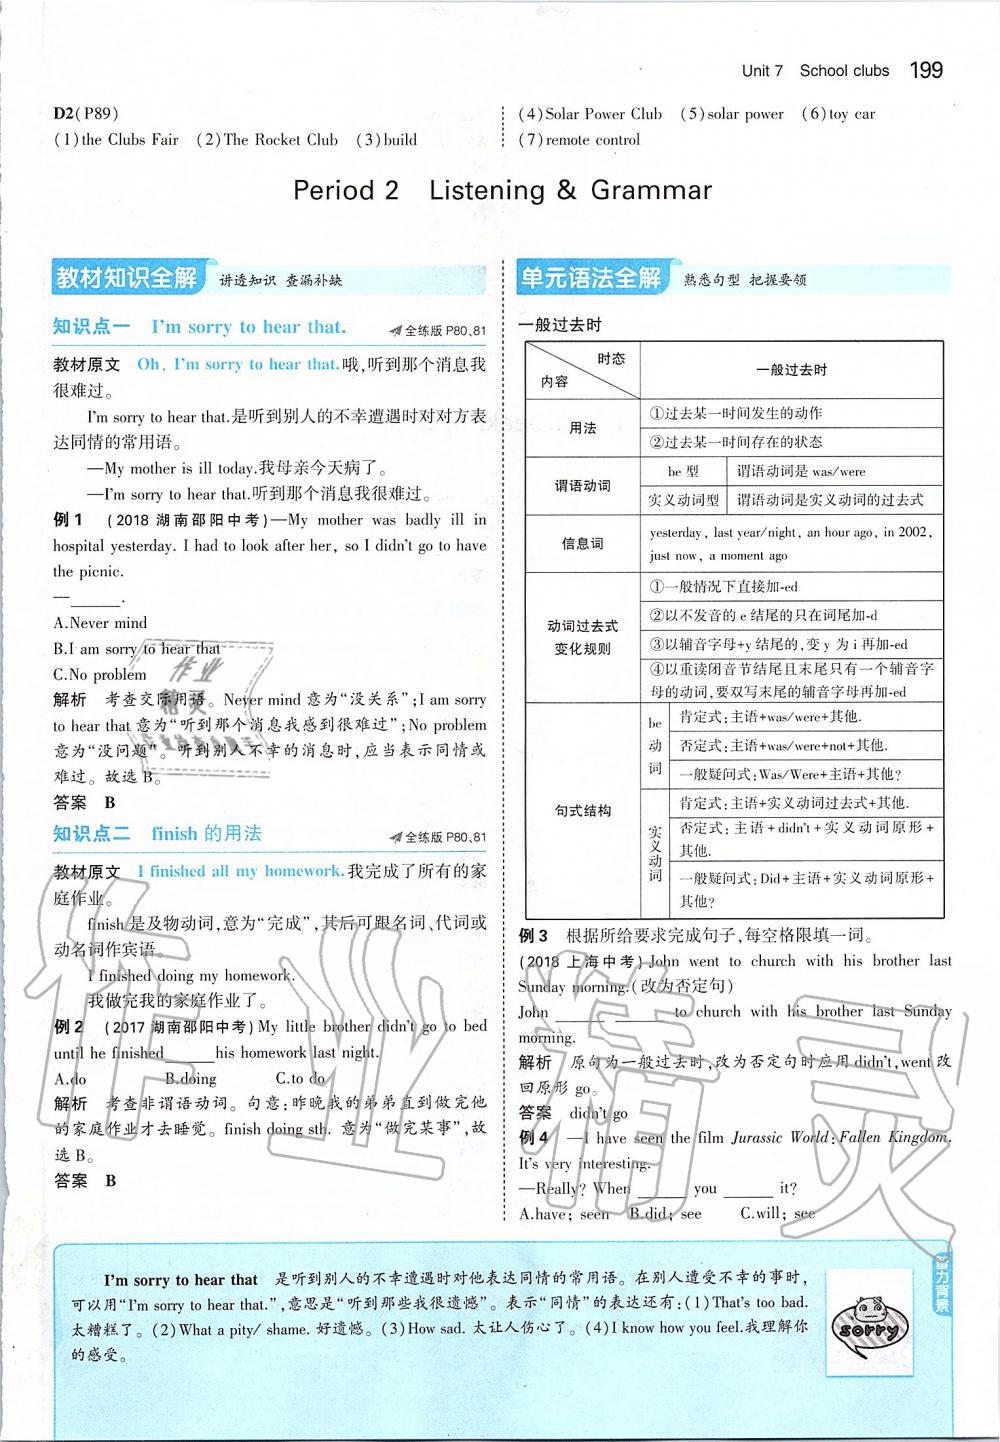 Unit 7 School clubs 199
D2(P89)
(1)the Clubs Fair (2)The Rocket Club (3)build
(4)Solar Power Club (5)solar power (6)toy car
(7)remote control
Period 2 Listening & Grammar
教材知识全解 讲透知识 查漏补缺
知识点一 I'm sorry to hear that. 全练版 P80、81
教材原文 Oh, I'm sorry to hear that.哦,听到那个消息我
很难过。
I'm sorry to hear that.是听到别人的不幸遭遇时对对方表
达同情的常用语。
—My mother is ill today.我母亲今天病了。
—I'm sorry to hear that.听到那个消息我很难过。
例1 (2018 湖南邵阳中考)—My mother was badly ill in
hospital yesterday. I had to look after her, so I didn't go to have
the picnic.
—______.
A.Never mind
B.I am sorry to hear that
C.No problem
解析 考查交际用语。Never mind 意为“没关系”;I am sorry
to hear that 意为“听到那个消息我感到很难过”;No problem
意为“没问题”。听到别人不幸的消息时,应当表示同情或
难过。故选 B。
答案 B
知识点二 finish 的用法 全练版 P80、81
教材原文 I finished all my homework.我完成了所有的家
庭作业。
finish 是及物动词,意为“完成”,其后可跟名词、代词或
动名词作宾语。
I finished doing my homework.
我做完我的家庭作业了。
例2 (2017 湖南邵阳中考) My little brother didn't go to bed
until he finished______his homework last night.
A.do B.doing C.to do
解析 考查非谓语动词。句意:昨晚我的弟弟直到做完他
的家庭作业才去睡觉。finish doing sth. 意为“做完某事”,故
选 B。
答案 B
单元语法全解 熟悉句型 把握要领
一般过去时
时态
内容
一般过去时
用法
①过去某一时间发生的动作
②过去某一时间存在的状态
谓语动词
be 型 谓语动词是 was/were
实义动词型 谓语动词是实义动词的过去式
信息词
yesterday, last year/night, an hour ago, in 2002,
just now, a moment ago
动词过去式
变化规则
①一般情况下直接加-ed
②以不发音的 e 结尾的只在词尾加-d
③以辅音字母+y 结尾的,变 y 为 i 再加-ed
④以重读闭音节结尾且末尾只有一个辅音字
母的动词,要双写末尾的辅音字母再加-ed
句式结构
be动词
肯定式:主语+was/were+其他.
否定式:主语+was/were+not+其他.
一般疑问式:Was/Were+主语+其他?
实义动词
肯定式:主语+实义动词过去式+其他.
否定式:主语+didn't+实义动词原形+
其他.
一般疑问式:Did+主语+实义动词原形+
其他?
例3 根据所给要求完成句子,每空格限填一词。
(2018 上海中考)John went to church with his brother last
Sunday morning.(改为否定句)
John ______ ______ to church with his brother last Sunday
morning.
解析 原句为一般过去时,改为否定句时应用 didn't,went 改
回原形 go。
答案 didn't go
例4 —I have seen the film Jurassic World: Fallen Kingdom.
It's very interesting.
—Really? When ______ you ______ it?
A.have; seen B.did; see C.will; see
I'm sorry to hear that 是听到别人的不幸遭遇时对他表达同情的常用语。在别人遭受不幸的事时,
可以用“I'm sorry to hear that.”,意思是“听到那些我很遗憾”。表示“同情”的表达还有:(1)That's too bad.
太糟糕了。(2)What a pity/ shame. 好遗憾。(3)How sad. 太让人伤心了。(4)I know how you feel.我理解你
的感受。
sorry
作业精灵
作业
精灵